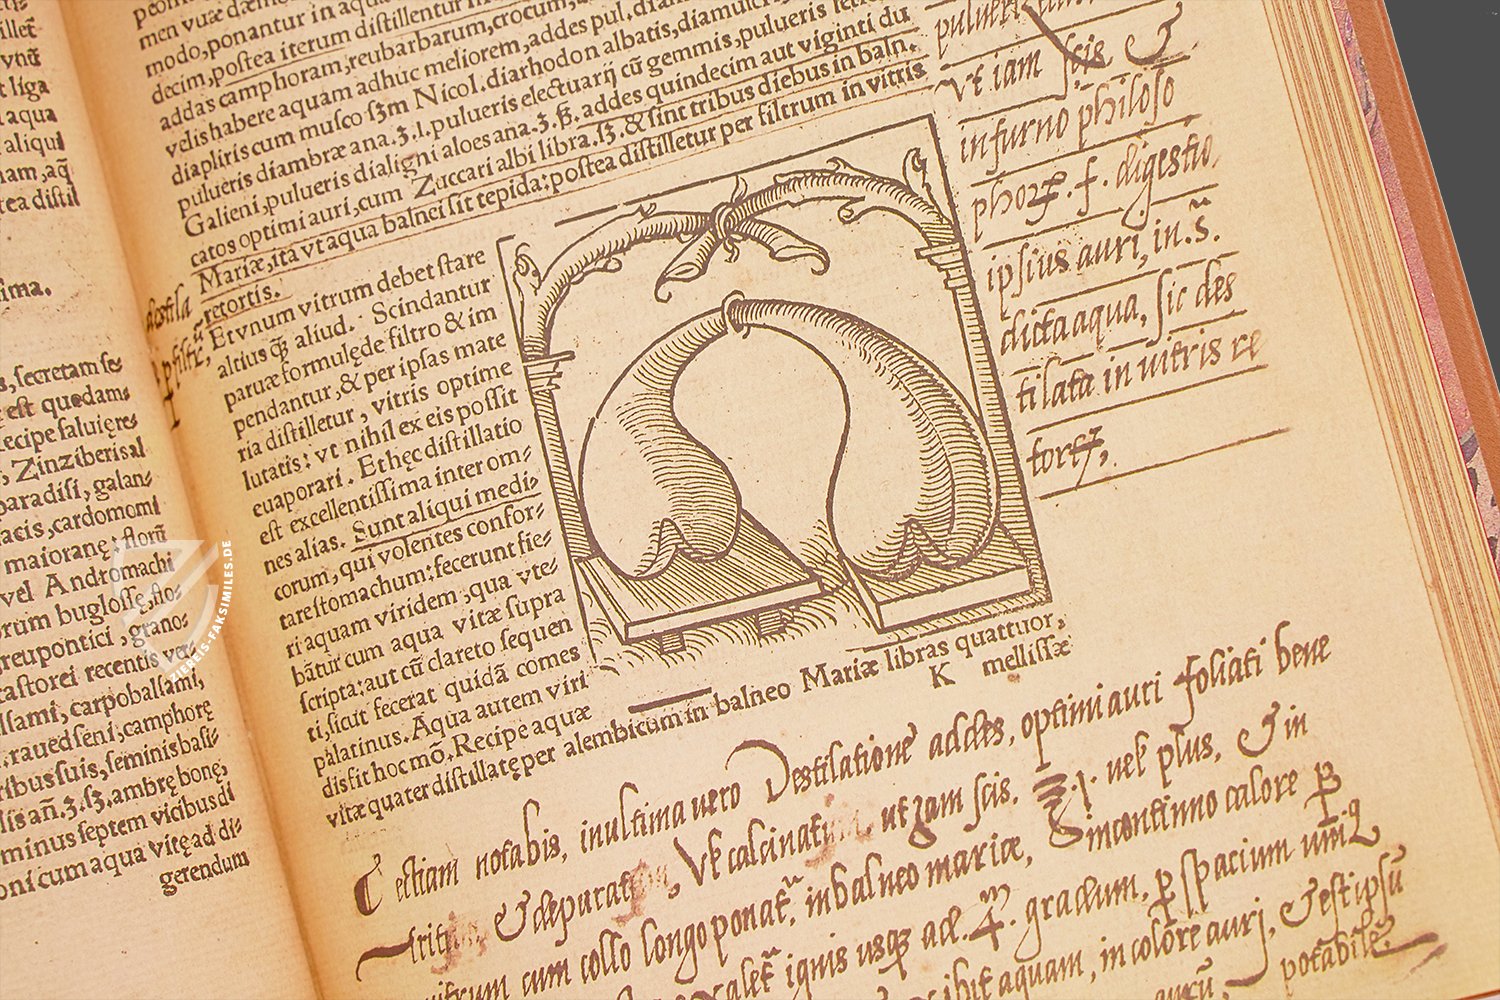 illet
vnū
t liga
aqua
aliqui
nam, aq̃
tea distil
sima.
s, secretam se
est quodam-
ecipe saluię res
, Zinziberis al
paradisi, galan-
acis, cardomomi
maioranę: florū
vel Andromachi
orum buglossę, flo-
reupontici, grano-
castorei recentis vel
llsami, carpobalsami,
. raued seni, camphorę
ribus suis, seminis basi-
lis añ. ʒ. ſʒ. ambrę bonę;
minus septem vicibus di
oni cum aqua vitę ad di-
gerendum
men vuæ
modo, ponantur in aqua
decim, postea iterum distillentur
addas camphoram, reubarbarum, crocum,
velis habere aquam adhuc meliorem, addes pul.
diapliris cum musco ſʒm Nicol. diarhodon albatis, diamuleri
pulueris diambræ ana. ʒ. ſ. pulueris electuarij cū gemmis, pulueris
Galieni, pulueris dialigni aloes ana. ʒ. ß. addes quindecim aut viginti du
catos optimi auri, cum Zuccari albi libra. ſʒ. & sint tribus diebus in baln.
Mariæ, ita vt aqua balnei sit tepida: postea distilletur per filtrum in vitris
retortis.
Et vnum vitrum debet stare
altius q̃ aliud. Scindantur
paruæ formulę de filtro & im
pendantur, & per ipsas mate
ria distilletur, vitris optime
lutatis: vt nihil ex eis possit
euaporari. Et hęc distillatio
est excellentissima inter om-
nes alias. Sunt aliqui medi-
corum, qui volentes confor-
tare stomachum: fecerunt fie-
ri aquam viridem, qua vte-
bātur cum aqua vitæ supra
scripta: aut cū clareto sequen
ti, sicut fecerat quidā comes
palatinus. Aqua autem viri
dis fit hoc mõ. Recipe aquæ
vitæ quater distillatę per alembicum in balneo Mariæ libras quattuor,
K mellissæ
destila
p filtrū
Vt iam scis &
in furno philoso
digestio,
ipsius auri, in. S̃.
dicta aqua, sic des
tilata in uitris re
tort,
Et etiam notabis, in ultima uero Destilatione addes, optimi auri foliati bene
&depurat , Vt calcinatum ut iam scis. vel plus, & in
uitrum cum collo longo ponat̃, in balneo mariæ, in continno calore
ignis usq; ad. 4. gradum, p spacium
aquam, in colore auri, & est ipsū
potabile.
ZIEREIS-FAKSIMILES.DE